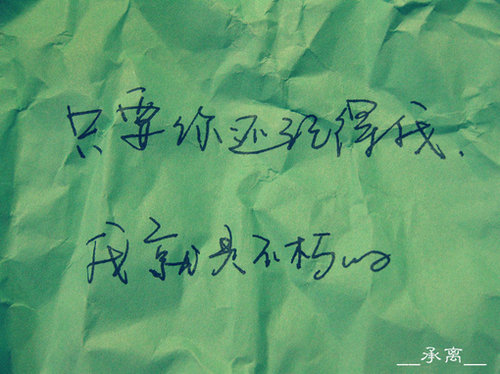 只要你还记得我.
我就是不朽的
__承离__